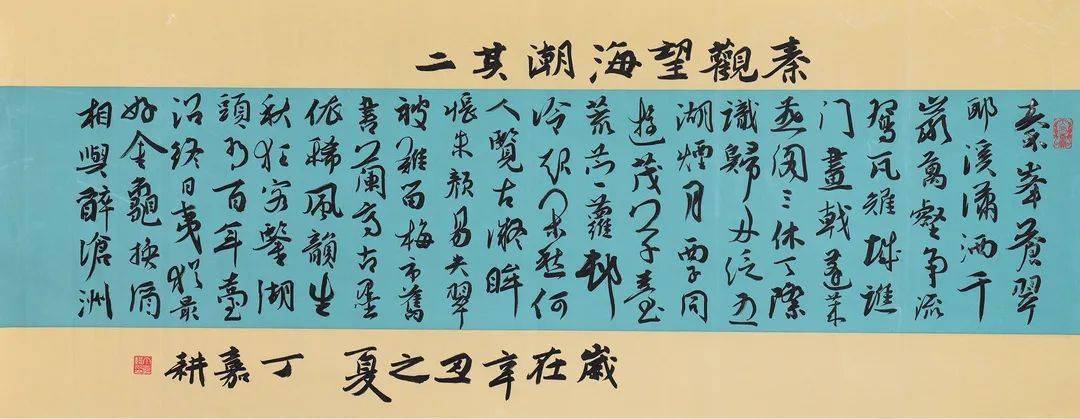 秦觀望海潮其二
秦峯蒼翠
耶溪瀟洒千
巖萬壑争流
鴛瓦雉城譙
门畫戟蓬萊
燕閣三休天際
識歸舟泛五
湖煙月西子同
遊茂草臺
荒苎蘿邨
冷起閒愁何
人覽古凝眸
悵朱颜易失翠
被難留梅市舊
書蘭亭古墨
依稀風韻生
秋狂客鑒湖
頭有百年臺
沼終日夷猶最
好金龜換酒
相與醉滄洲
歲在辛丑之夏 丁嘉耕